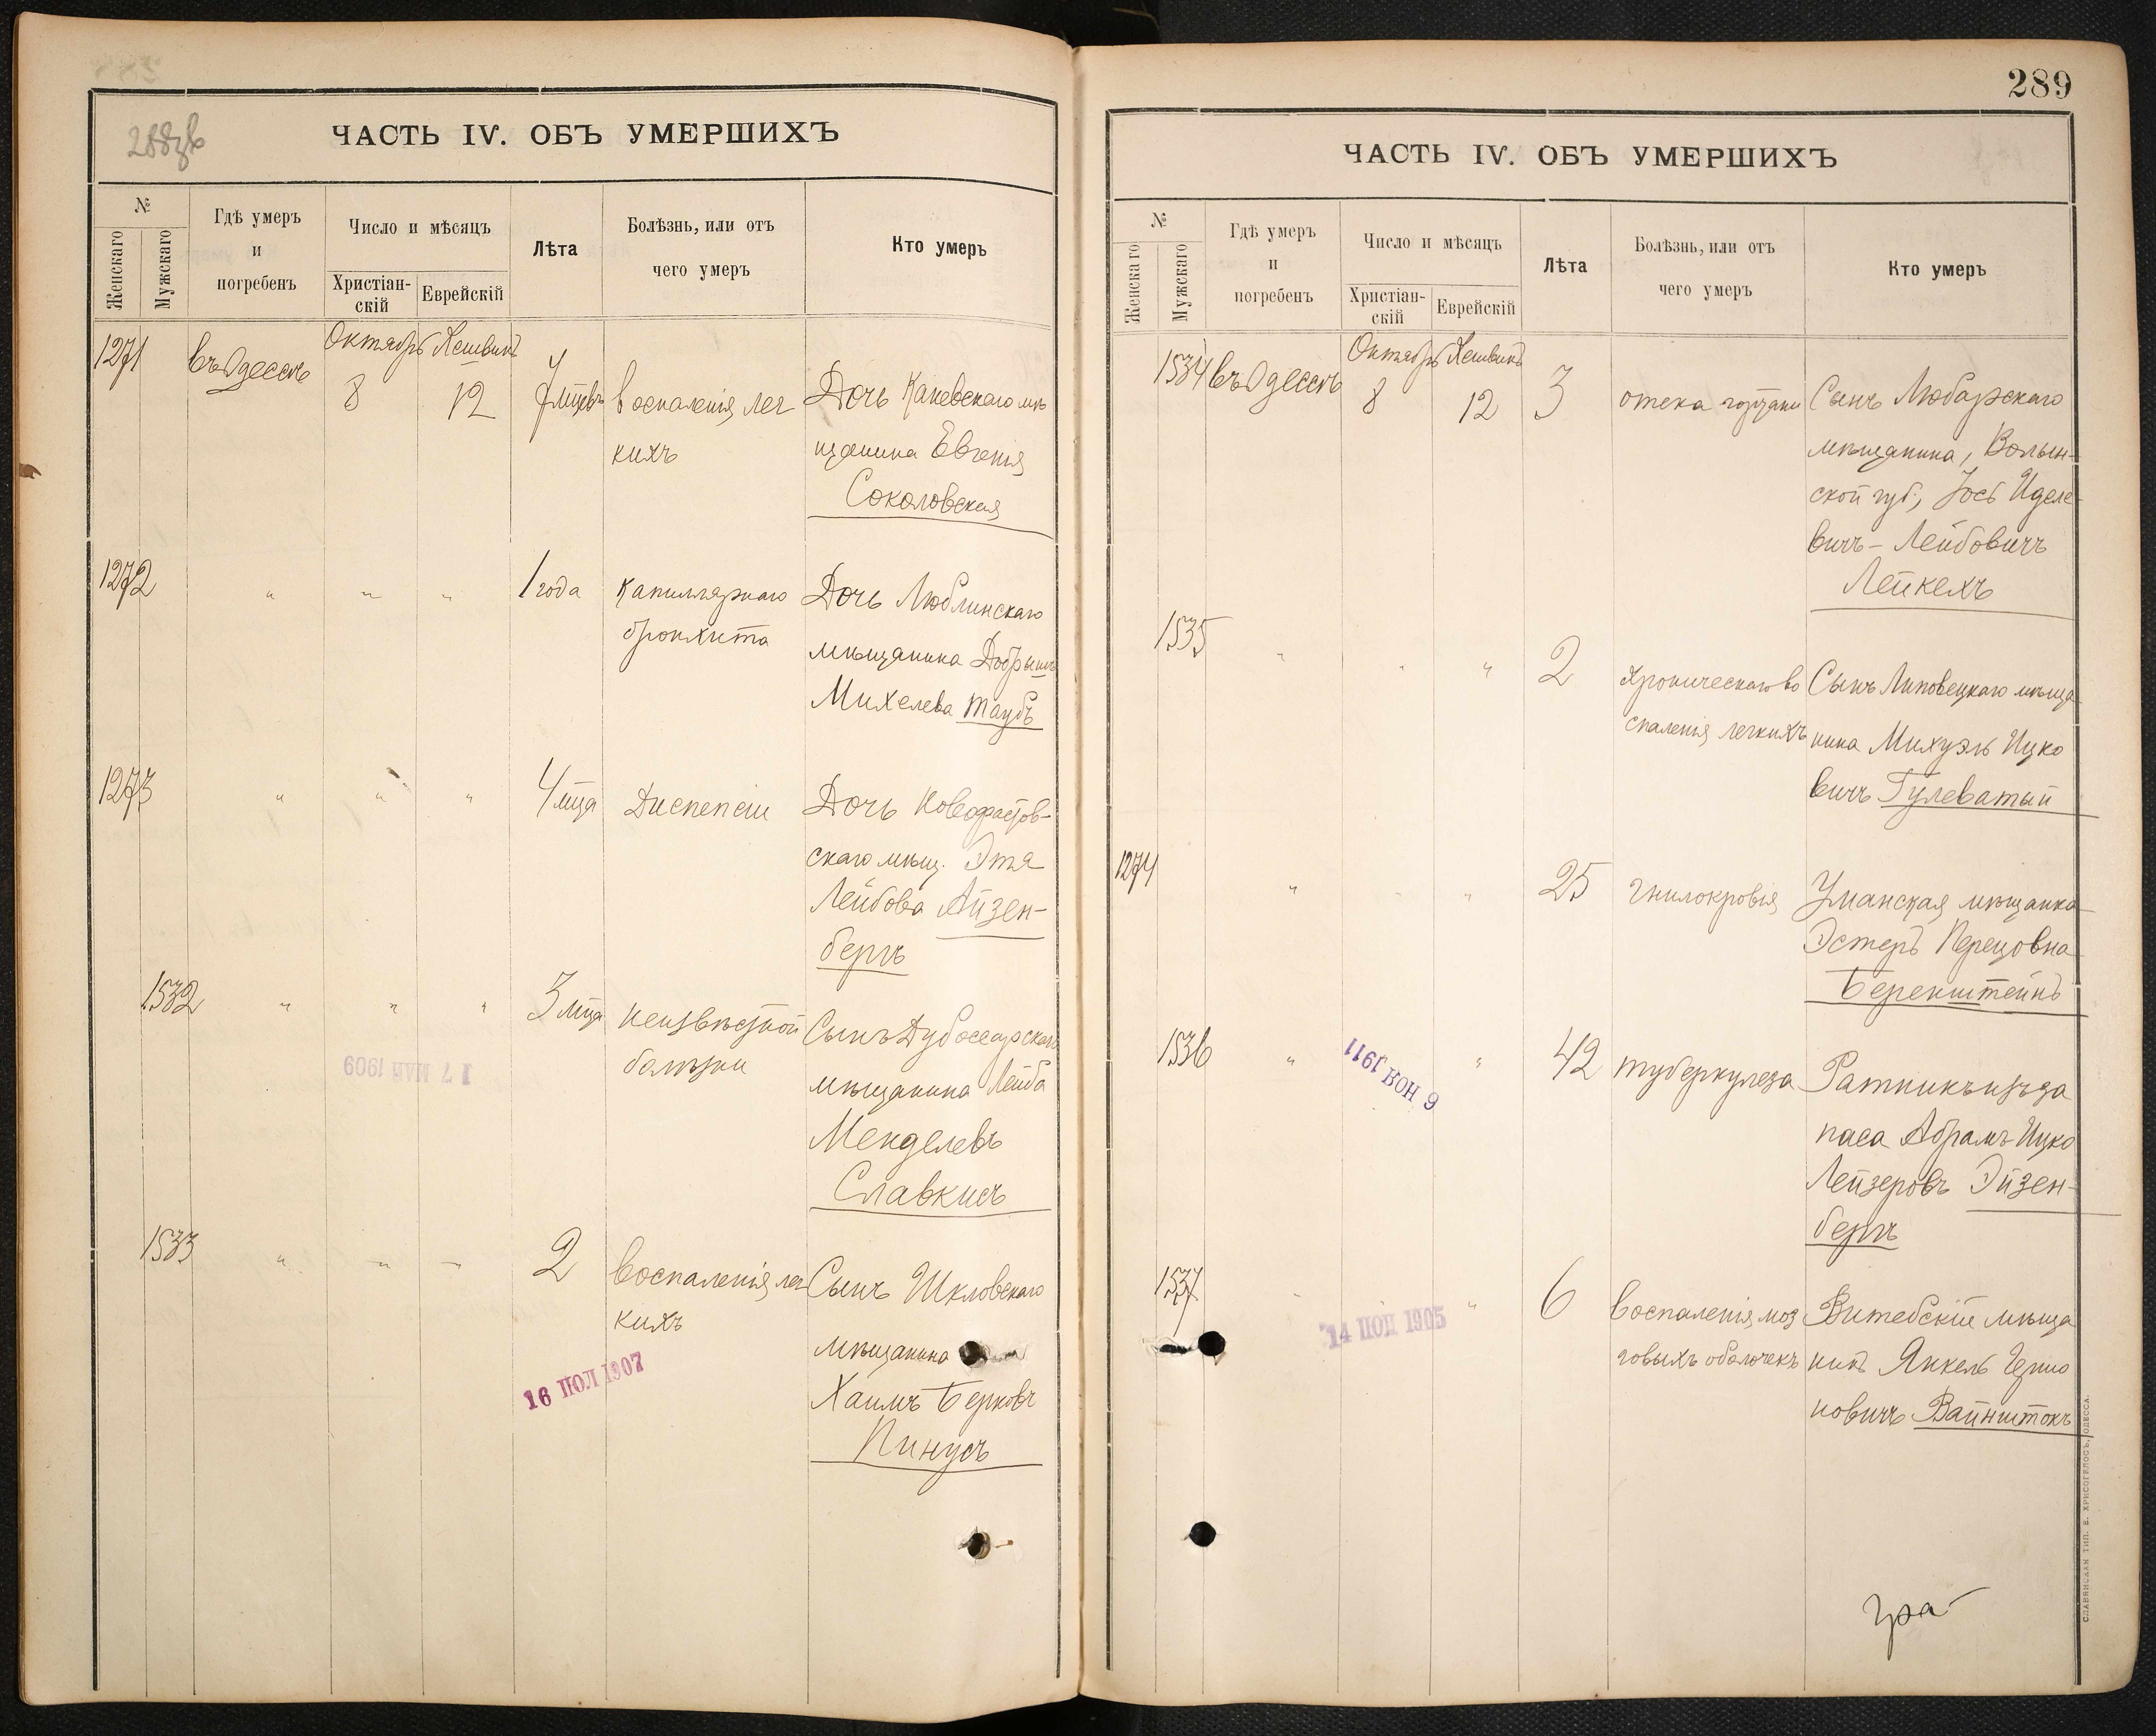 288об
ЧАСТЬ IV. ОБЪ УМЕРШИХЪ
№
Женскаго
Мужскаго
Гдѣ умеръ
и
погребенъ
Число и мѣсяцъ
Христіан-
скій
Еврейскій
Лѣта
Болѣзнь, или отъ
чего умеръ
Кто умеръ
1271
въ Одессѣ
Октябрь Хешвинъ
8 12
7 мцевъ
воспаленія лег
кихъ
Дочь Каневскаго мѣ
щанина Евгенія
Соколовская
1272 " " "
1 года
Капиллярнаго
бронхита
Дочь Люблинскаго
мѣщанина Добрышъ
Михелева Таубъ
1273 " " "
4 мца
Диспепсіи
Дочь Новофастов-
скаго мѣщ. Этя
Лейбова Айзен-
бергъ
1532 " " "
3 мца
неизвѣстной
болѣзни
Сынъ Дубоссарскаго
мѣщанина Лейба
Менделевъ
Славкисъ
17 МАЯ 1909
1533 " " "
2
воспаленія лег
кихъ
Сынъ Шкловскаго
мѣщанина
Хаимъ Берковъ
Пинусъ
16 ІЮЛ 1907
289
ЧАСТЬ IV. ОБЪ УМЕРШИХЪ
№
Женскаго
Мужскаго
Гдѣ умеръ
и
погребенъ
Число и мѣсяцъ
Христіан-
скій
Еврейскій
Лѣта
Болѣзнь, или отъ
чего умеръ
Кто умеръ
1534 въ Одессѣ
Октябрь Хешвинъ
8 12
3
отека гортани
Сынъ Любарскаго
мѣщанина, Волын-
ской губ., Іось Иделе-
вичъ-Лейбовичъ
Лейкехъ
1535 " " "
2
хроническаго во
спаленія легкихъ
Сынъ Липовецкаго мѣща
нина Михуэль Ицко
вичъ Гулеватый
1274 " " "
25
гнилокровія
Уманская мѣщанка
Эстеръ Перецовна
Беренштейнъ
1536 " "
42
туберкулеза
Ратникъ изъ за
паса Абрамъ-Ицко
Лейзеровъ Эйзен-
бергъ
6 НОЯ 1911
1537 " " "
6
воспаленія моз
говыхъ оболочекъ
Витебскій мѣща
нинъ Янкель
новичъ Вайнштокъ
14 ІЮЛ 1905
СЛАВЯНСКАЯ ТИП. Е. ХРИСОГЕЛОСЪ, ОДЕССА.